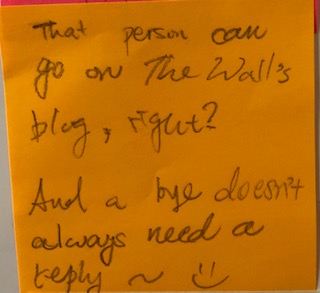 That person can
go on The Wall's
blog, right?
And a bye doesn't
always need a
reply ~ :)